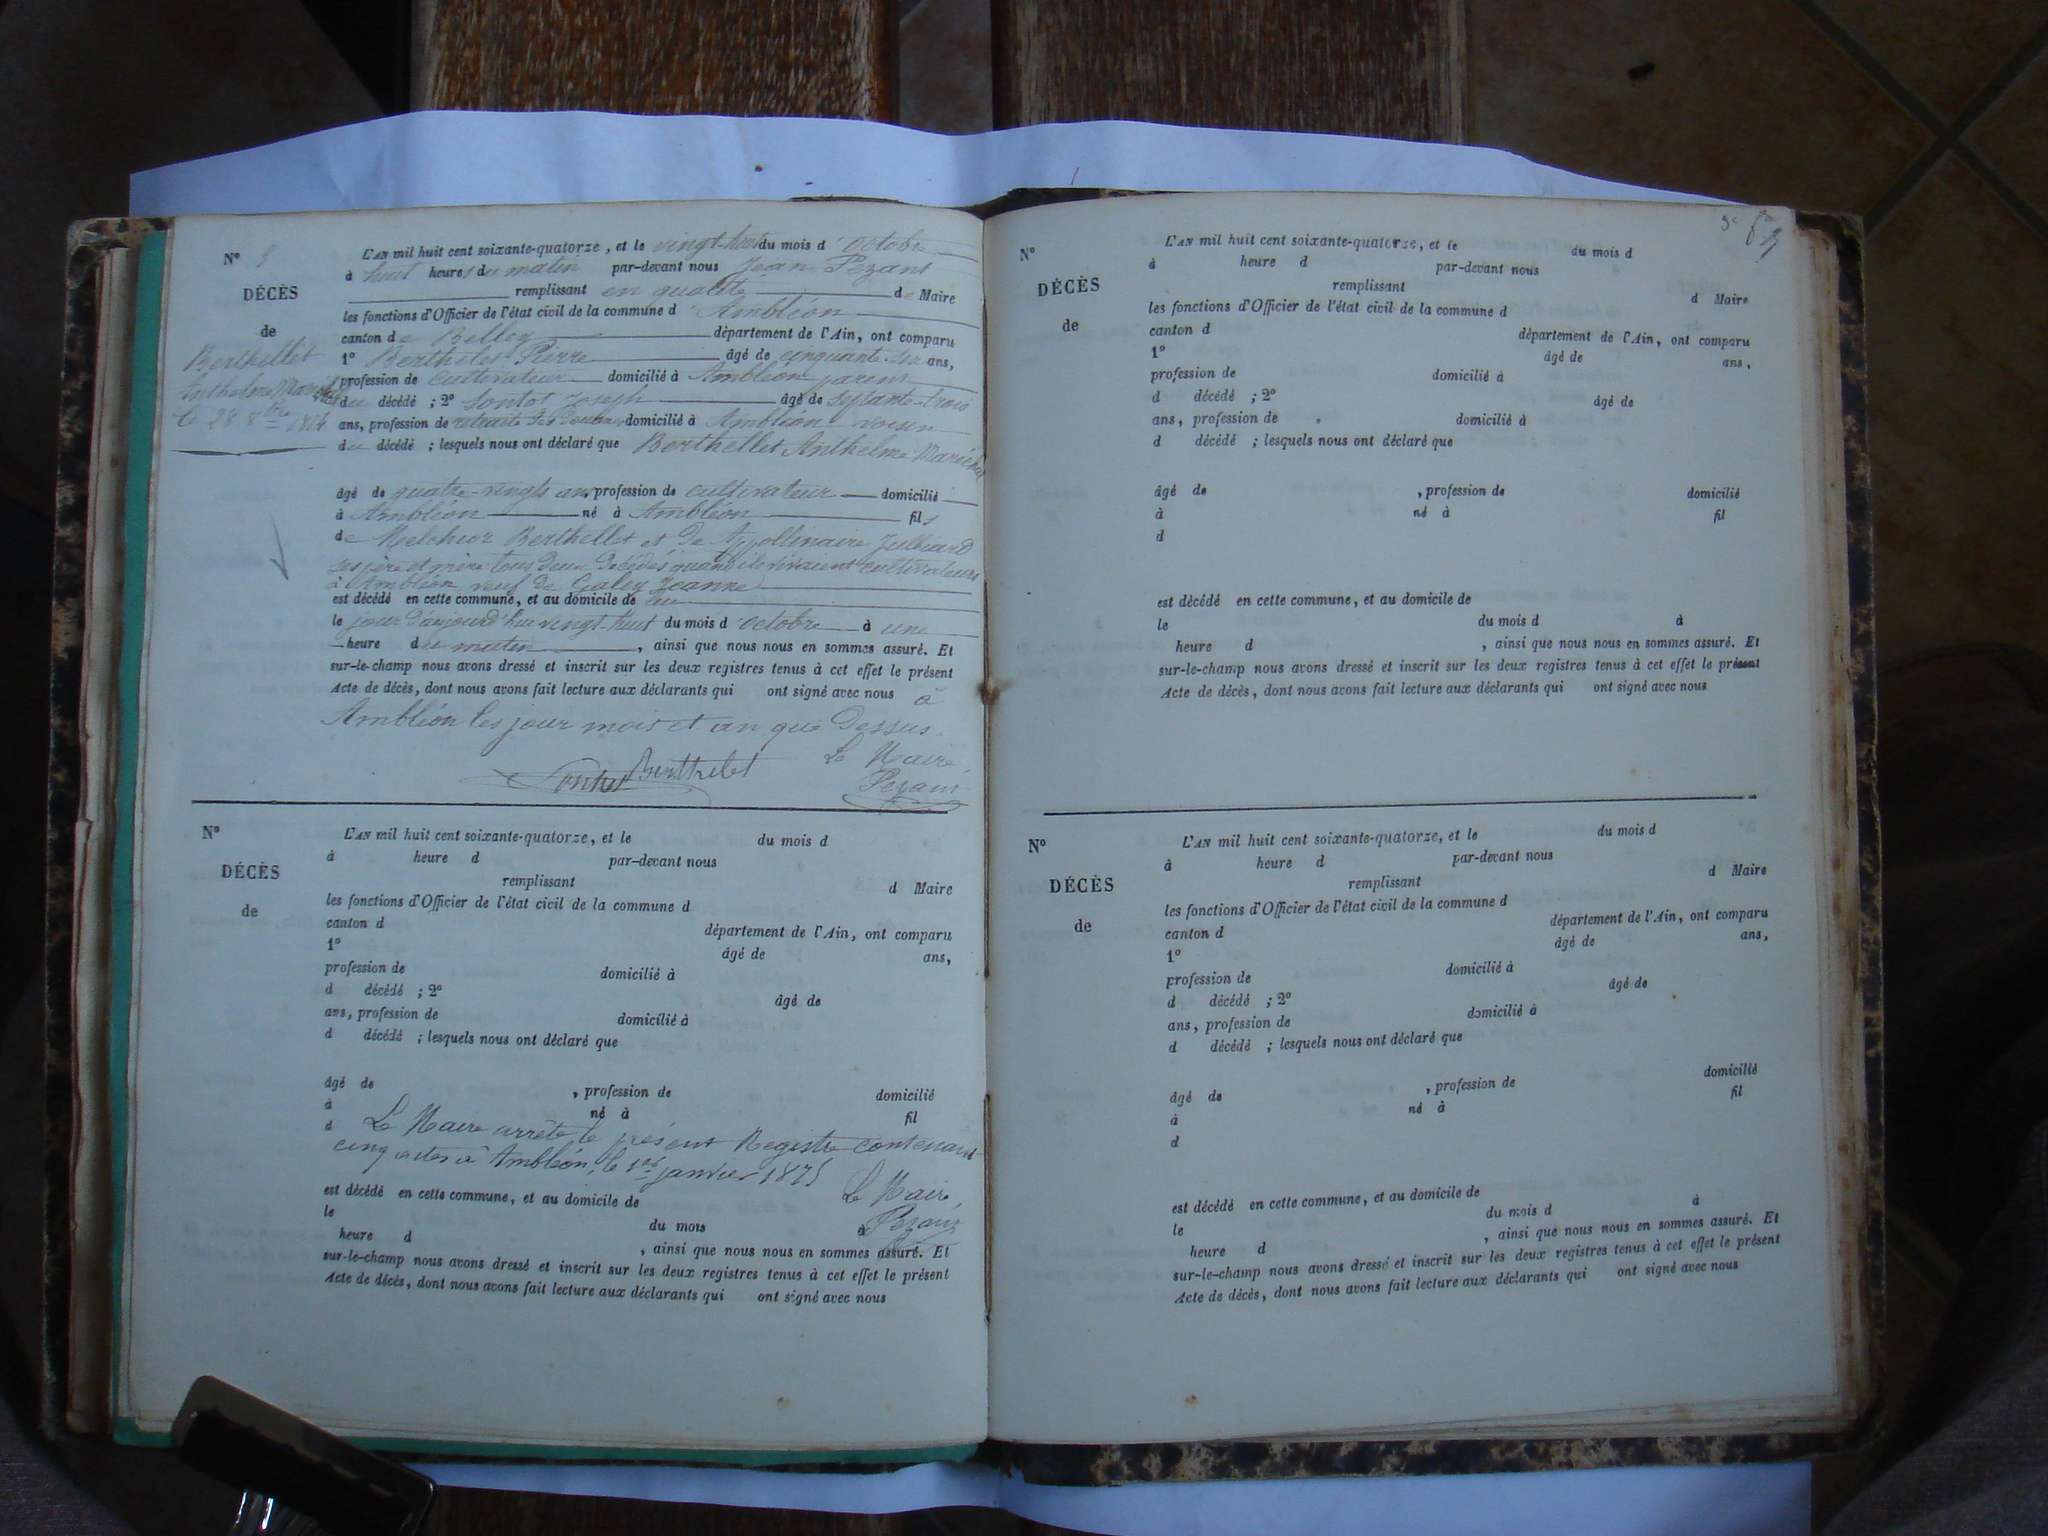 N° 5
DÉCÈS
de
Berthellet
Anthelme Maréchal
le 28 8bre 1874
L'AN mil huit cent soixante-quatorze, et le vingt-huit du mois d'octobre
à huit heures du matin par-devant nous Jean Pezant
remplissant en qualité de Maire
les fonctions d'Officier de l'état civil de la commune d'Ambléon
canton de Belley département de l'Ain, ont comparu
1° Berthelet Pierre âgé de cinquante-six ans,
profession de cultivateur domicilié à Ambléon parent
du décédé ; 2° Sontot Joseph âgé de septante-trois
ans, profession de retraité des Douanes domicilié à Ambléon voisin
du décédé ; lesquels nous ont déclaré que Berthellet Anthelme Maréchal
âgé de quatre-vingts ans, profession de cultivateur domicilié
à Ambléon né à Ambléon fils
de Melchior Berthellet et de Appollinaire Julliard
ses père et mère tous deux décédés quand ils vivaient cultivateurs
à Ambléon veuf de Galey Jeanne
est décédé en cette commune, et au domicile de lui
le jour d'aujourd'hui vingt-huit du mois d'octobre à une
heure du matin, ainsi que nous nous en sommes assuré. Et
sur-le-champ nous avons dressé et inscrit sur les deux registres tenus à cet effet le présent
Acte de décès, dont nous avons fait lecture aux déclarants qui ont signé avec nous à
Ambléon les jour mois et an que dessus.
Le Maire
Berthelet
Pezant
N°
DÉCÈS
de
L'AN mil huit cent soixante-quatorze, et le du mois d
à heure d par-devant nous
remplissant d Maire
les fonctions d'Officier de l'état civil de la commune d
canton d département de l'Ain, ont comparu
1° âgé de ans,
profession de domicilié à
d décédé ; 2° âgé de
ans, profession de domicilié à
d décédé ; lesquels nous ont déclaré que
âgé de , profession de domicilié
à né à fil
d Le Maire arrête le présent Registre contenant
cinq actes à Ambléon, le 1er janvier 1875
Le Maire,
Pezant
est décédé en cette commune, et au domicile de
le du mois à
heure d , ainsi que nous nous en sommes assuré. Et
sur-le-champ nous avons dressé et inscrit sur les deux registres tenus à cet effet le présent
Acte de décès, dont nous avons fait lecture aux déclarants qui ont signé avec nous
N°
DÉCÈS
de
L'AN mil huit cent soixante-quatorze, et le du mois d
à heure d par-devant nous
remplissant d Maire
les fonctions d'Officier de l'état civil de la commune d
canton d département de l'Ain, ont comparu
1° âgé de ans,
profession de domicilié à
d décédé ; 2° âgé de
ans, profession de domicilié à
d décédé ; lesquels nous ont déclaré que
âgé de , profession de domicilié
à né à fil
d
est décédé en cette commune, et au domicile de
le du mois d à
heure d , ainsi que nous nous en sommes assuré. Et
sur-le-champ nous avons dressé et inscrit sur les deux registres tenus à cet effet le présent
Acte de décès, dont nous avons fait lecture aux déclarants qui ont signé avec nous
N°
DÉCÈS
de
L'AN mil huit cent soixante-quatorze, et le du mois d
à heure d par-devant nous
remplissant d Maire
les fonctions d'Officier de l'état civil de la commune d
canton d département de l'Ain, ont comparu
1° âgé de ans,
profession de domicilié à
d décédé ; 2° âgé de
ans, profession de domicilié à
d décédé ; lesquels nous ont déclaré que
âgé de , profession de domicilié
à né à fil
d
est décédé en cette commune, et au domicile de
le du mois d à
heure d , ainsi que nous nous en sommes assuré. Et
sur-le-champ nous avons dressé et inscrit sur les deux registres tenus à cet effet le présent
Acte de décès, dont nous avons fait lecture aux déclarants qui ont signé avec nous